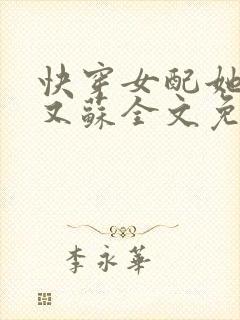 快穿女配她
又蘇全文免
李永華